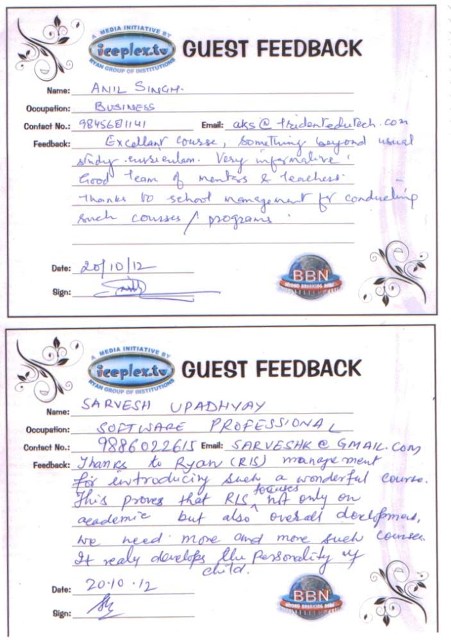 A MEDIA INITIATIVE BY
iceplex.tv
RYAN GROUP OF INSTITUTIONS
GUEST FEEDBACK
Name: ANIL SINGH.
Occupation: BUSINESS
Contact No.: 9845681141 Email: aks@tridentedutech.com
Feedback: Excellant course, Something beyond usual
study curriculam. Very informative!
Good team of mentors & teachers.
Thanks to school management for conducting
such courses / programs.
Date: 20/10/12
Sign:
BBN
A MEDIA INITIATIVE BY
iceplex.tv
RYAN GROUP OF INSTITUTIONS
GUEST FEEDBACK
Name: SARVESH UPADHYAY
Occupation: SOFTWARE PROFESSIONAL
Contact No.: 9886022615 Email: SARVESHK@GMAIL.COM
Feedback: Thanks to Ryan (RIS) management
for introducing such a wonderful course.
This proves that RIS focuses not only on
academic but also overall development,
we need more and more such courses
It realy develops the personality of
child.
Date: 20.10.12
Sign:
BBN